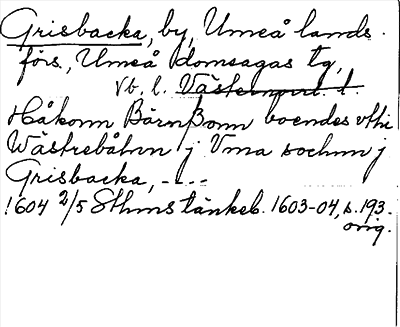 Grisbacka, by, Umeå lands-
förs., Umeå domsagas tg,
Vb. l. Västernorrl. l.
Håkonn Bärnßonn boendes vthi
Wästrebåhn j Vma sochnn j
Grisbacka, - - - -
1604 2/5 Sthms tänkeb. 1603-04, s. 193.
orig.